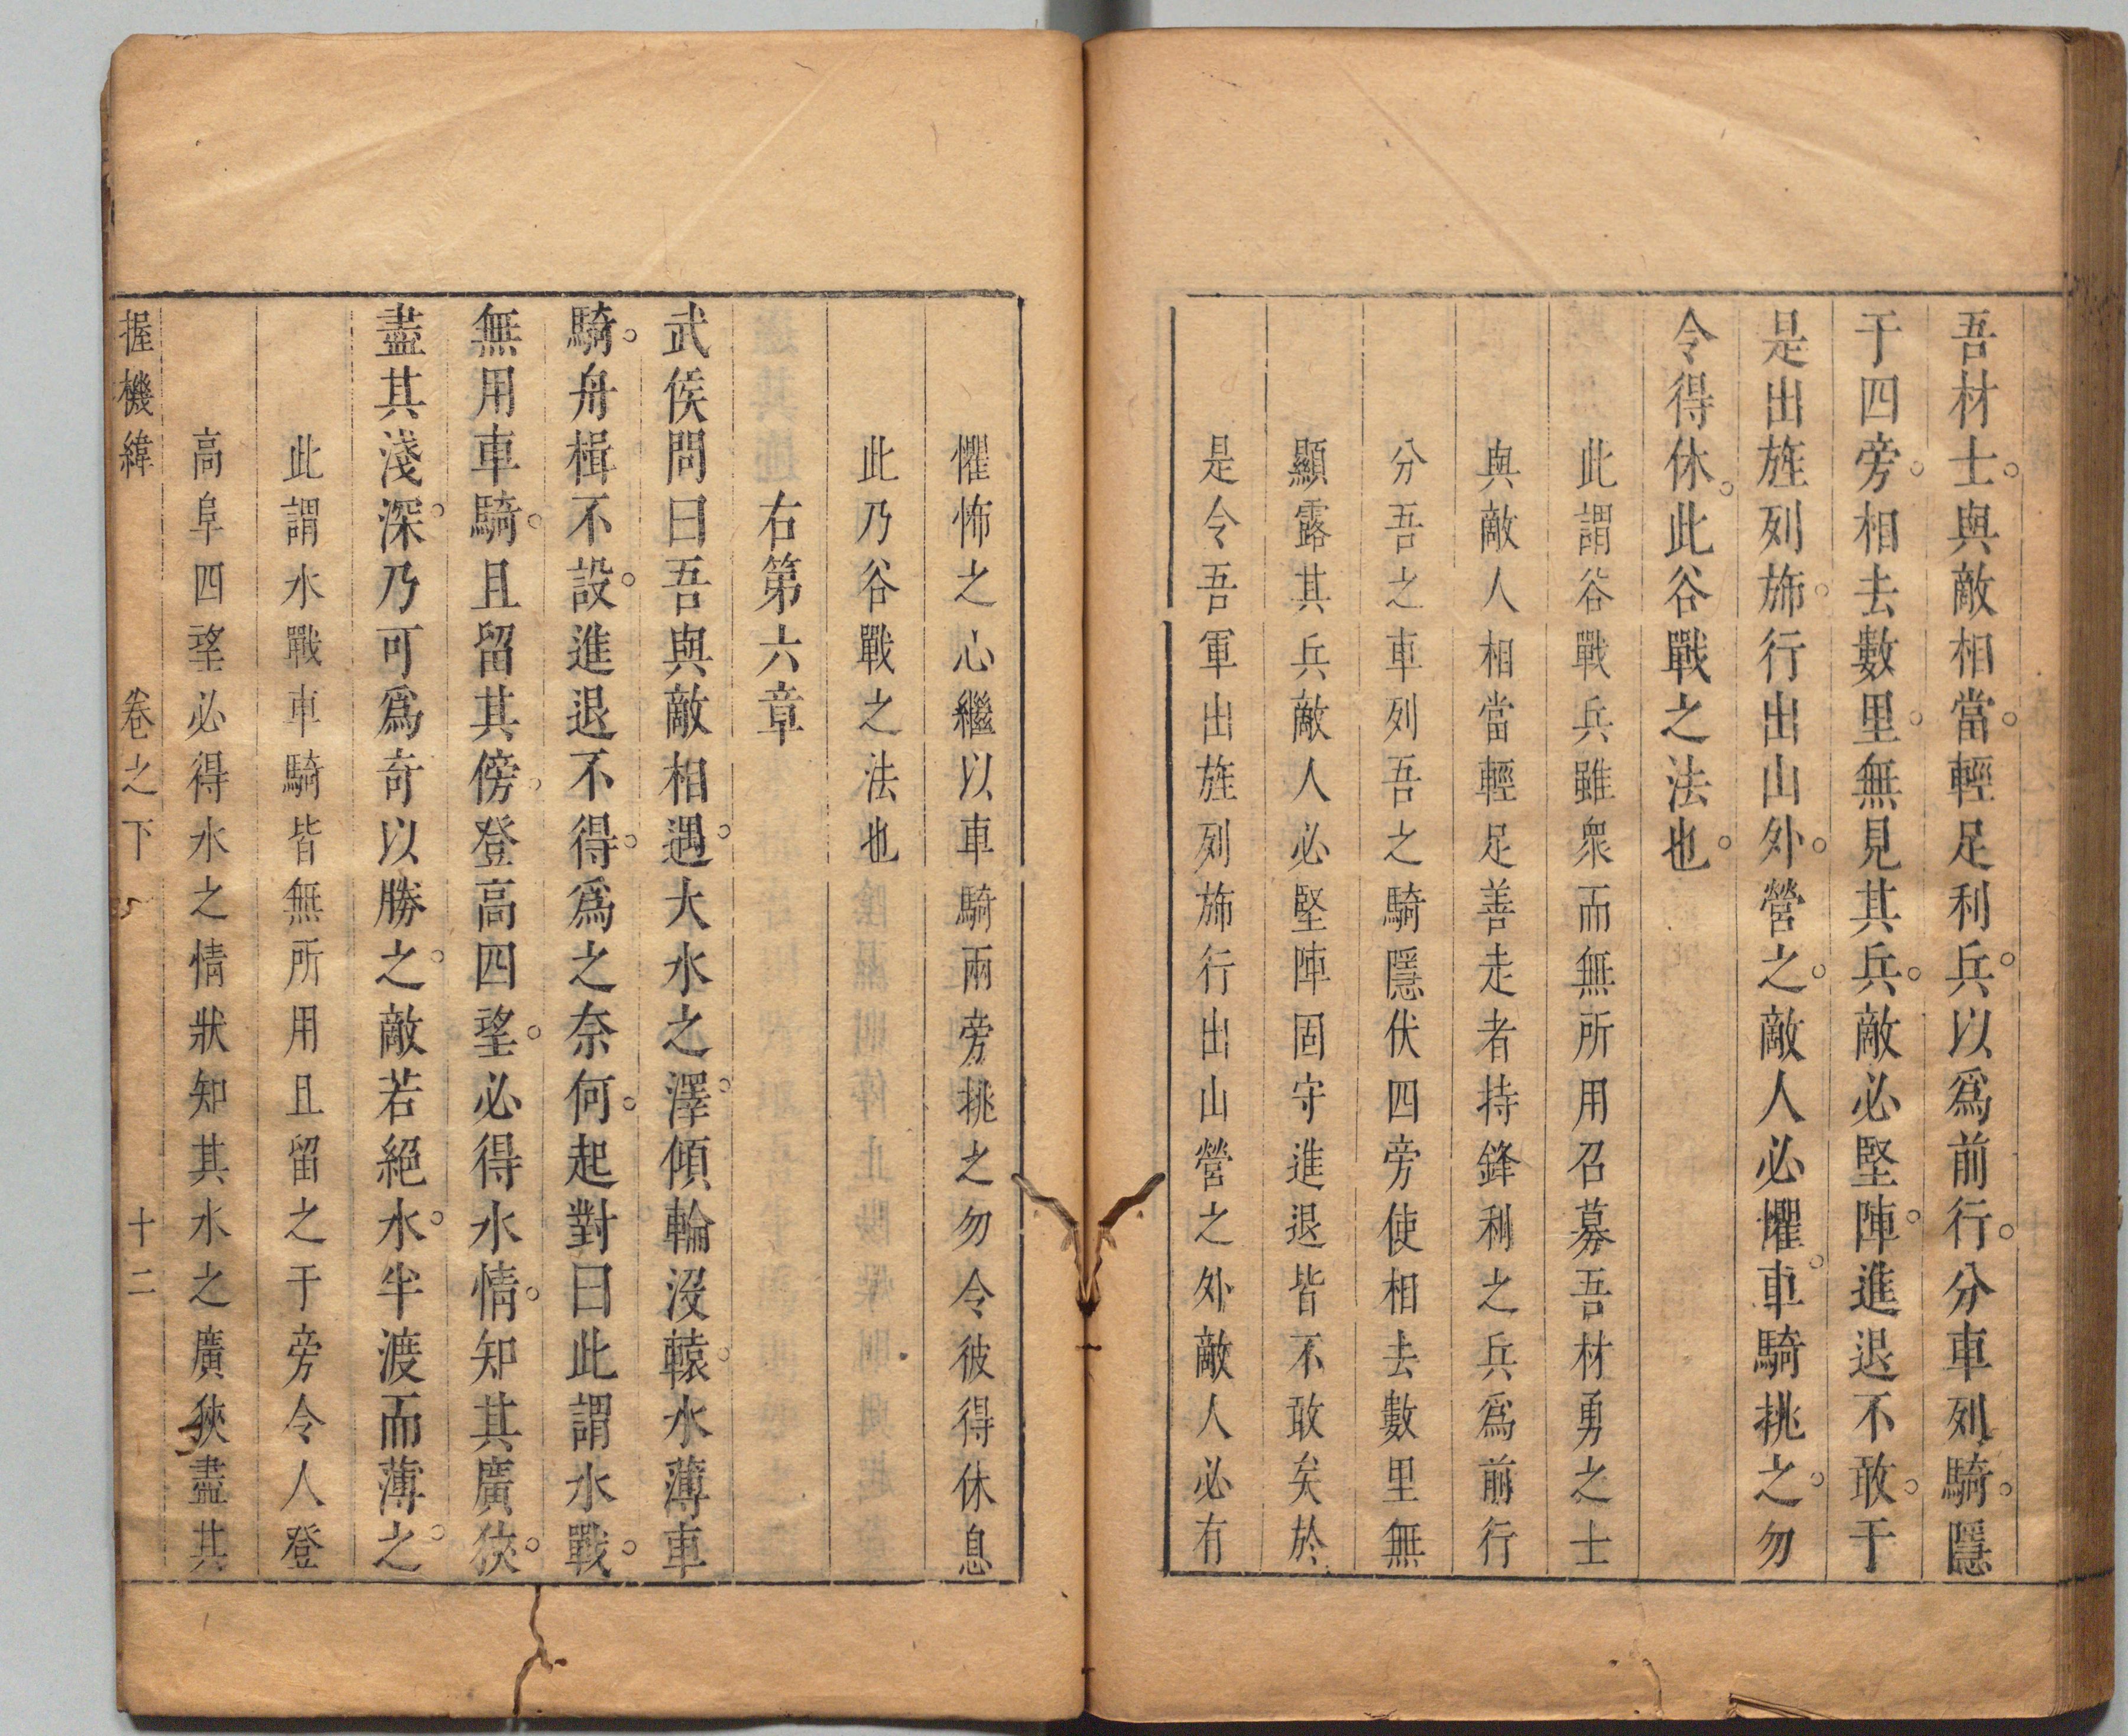 吾材士。與敵相當。輕足利兵。以爲前行。分車列騎。隱
于四旁。相去數里。無見其兵。敵必堅陣。進退不敢。于
是出旌列旆。行出山外。營之。敵人必懼。車騎挑之。勿
令得休。此谷戰之法也。
此謂谷戰兵雖衆而無所用召募吾材勇之士
與敵人相當輕足善走者持鋒利之兵爲前行
分吾之車列吾之騎隱伏四旁使相去數里無
顯露其兵敵人必堅陣固守進退皆不敢矣於
是令吾軍出旌列旆行出山營之外敵人必有
懼怖之心繼以車騎兩旁挑之勿令彼得休息
此乃谷戰之法也
右第六章
武侯問曰吾與敵相遇。大水之澤。傾輪沒轅。水薄車
騎。舟楫不設。進退不得。爲之奈何。起對曰此謂水戰。
無用車騎。且留其傍。登高四望。必得水情。知其廣狹。
盡其淺深。乃可爲奇以勝之。敵若絕水。半渡而薄之。
此謂水戰車騎皆無所用且留之于旁令人登
高阜四望必得水之情狀知其水之廣狹盡其
握機緯 卷之下 十二